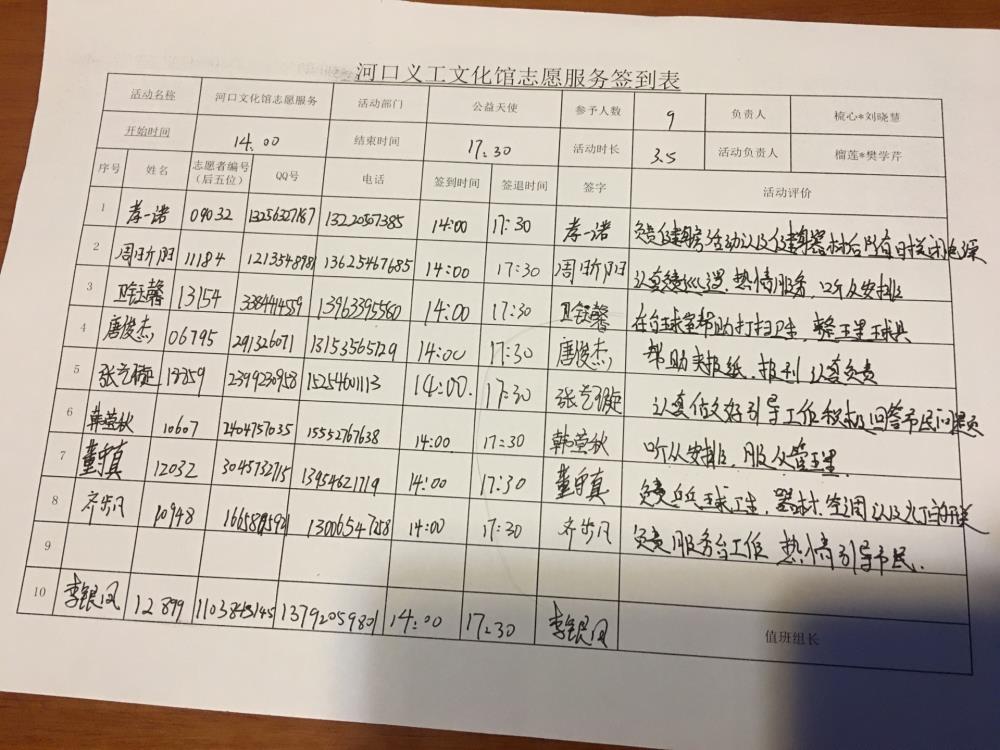 河口义工文化馆志愿服务签到表
活动名称 河口文化馆志愿服务 活动部门 公益天使 参予人数 9 负责人 梳心*刘晓慧
开始时间 14.00 结束时间 17.30 活动时长 3.5 活动负责人 榴莲*樊学芹
序号 姓名 志愿者编号（后五位） QQ号 电话 签到时间 签退时间 签字 活动评价
1 孝一诺 09032 13220567385 14:00 17:30 孝一诺
2 周昕阳 11184 13625467685 14:00 17:30 周昕阳 认真负责巡逻,热情服务,听从安排
3 13154 3384414559 13963395560 14:00 17:30 在台球室帮助打扫卫生,整理球具
4 唐俊杰 06795 291326071 13153565729 14:00 17:30 唐俊杰 帮助夹报纸.报刊 认真负责
5 张艺璇 2399230958 15254601113 14:00. 17:30 张艺璇 认真估文好引导工作积极回答市民问题
6 韩莹秋 10607 2404757035 15552767638 14:00 17:30 韩莹秋 听从安排,服从管理
7 董守真 12032 3045732715 13954621719 14:00 17:30 董守真 负责乒乓球卫生,器材.空调以及
8 齐步凡 10948 13006547258 14:00 17:30 齐步凡 负责服务台工作 热情引导市民.
9
10 李银凤 12899 13792059801 14:00 17:30 李银凤 值班组长